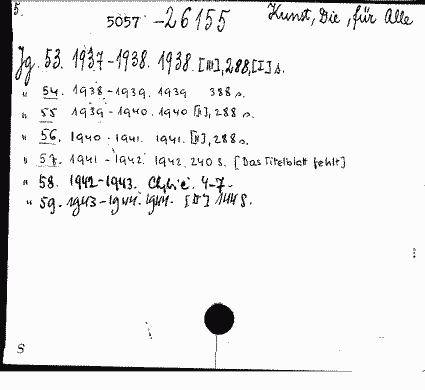 5.
5057 - 26155 Kunst, Die, für Alle
Jg. 53. 1937-1938. 1938. [III], 288, [I] s.
" 54. 1938-1939. 1939 388 s.
" 55 1939-1940. 1940 [II], 288 s.
" 56. 1940-1941. 1941. [II], 288 s.
" 57. 1941-1942. 1942. 240 S. [Das Titelblatt fehlt]
" 58. 1942-1943. 4-7.
" 59. 1943-1944. 1944. [II] 144 S.
S